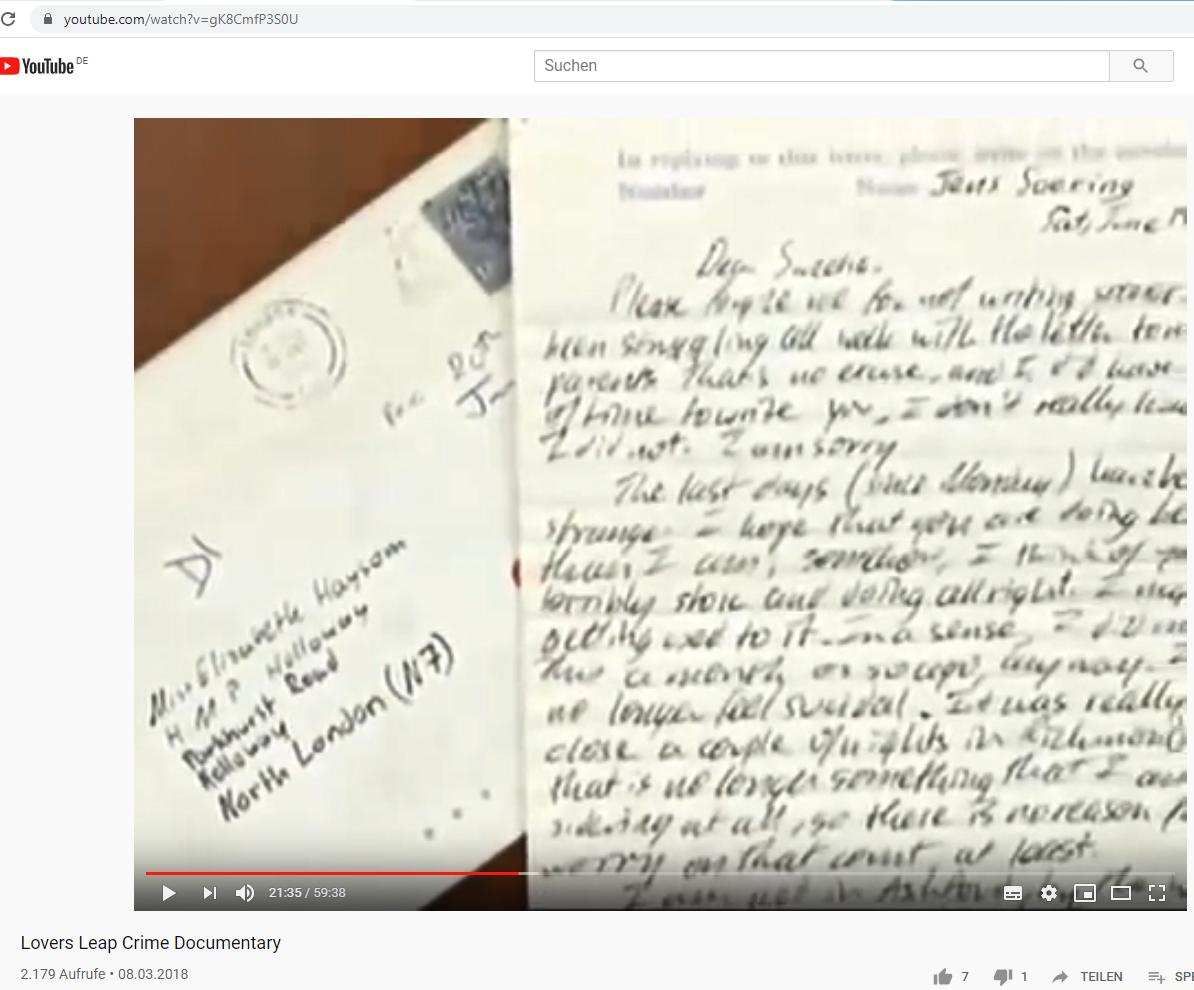 youtube.com/watch?v=gK8CmfP3S0U
YouTube DE
Suchen
Miss Elizabeth Haysom
H M P Holloway
Parkhurst Road
Holloway
North London (N7)
In replying to this letter, please write on the
Number Name Jens Soering
Sat, June
Dear
Please me for not writing sooner
been struggling all week with the letter
parents. That's no excuse, and I did have
of time to write you, I don't really
I did not. I am sorry
The last days (since Monday) have
strange. I hope that you are doing
than I am, somehow, I think of
terribly and doing allright. I
getting used to it. In a sense, I did
this a month or so ago, anyway. I
no longer feel suicidal. It was really
close a couple of nights in Richmond
that is no longer something that I am
sidering at all, so there is no reason
worry on that count, at least.
I am not in
21:35 / 59:38
Lovers Leap Crime Documentary
2.179 Aufrufe • 08.03.2018
7
1
TEILEN
SPE